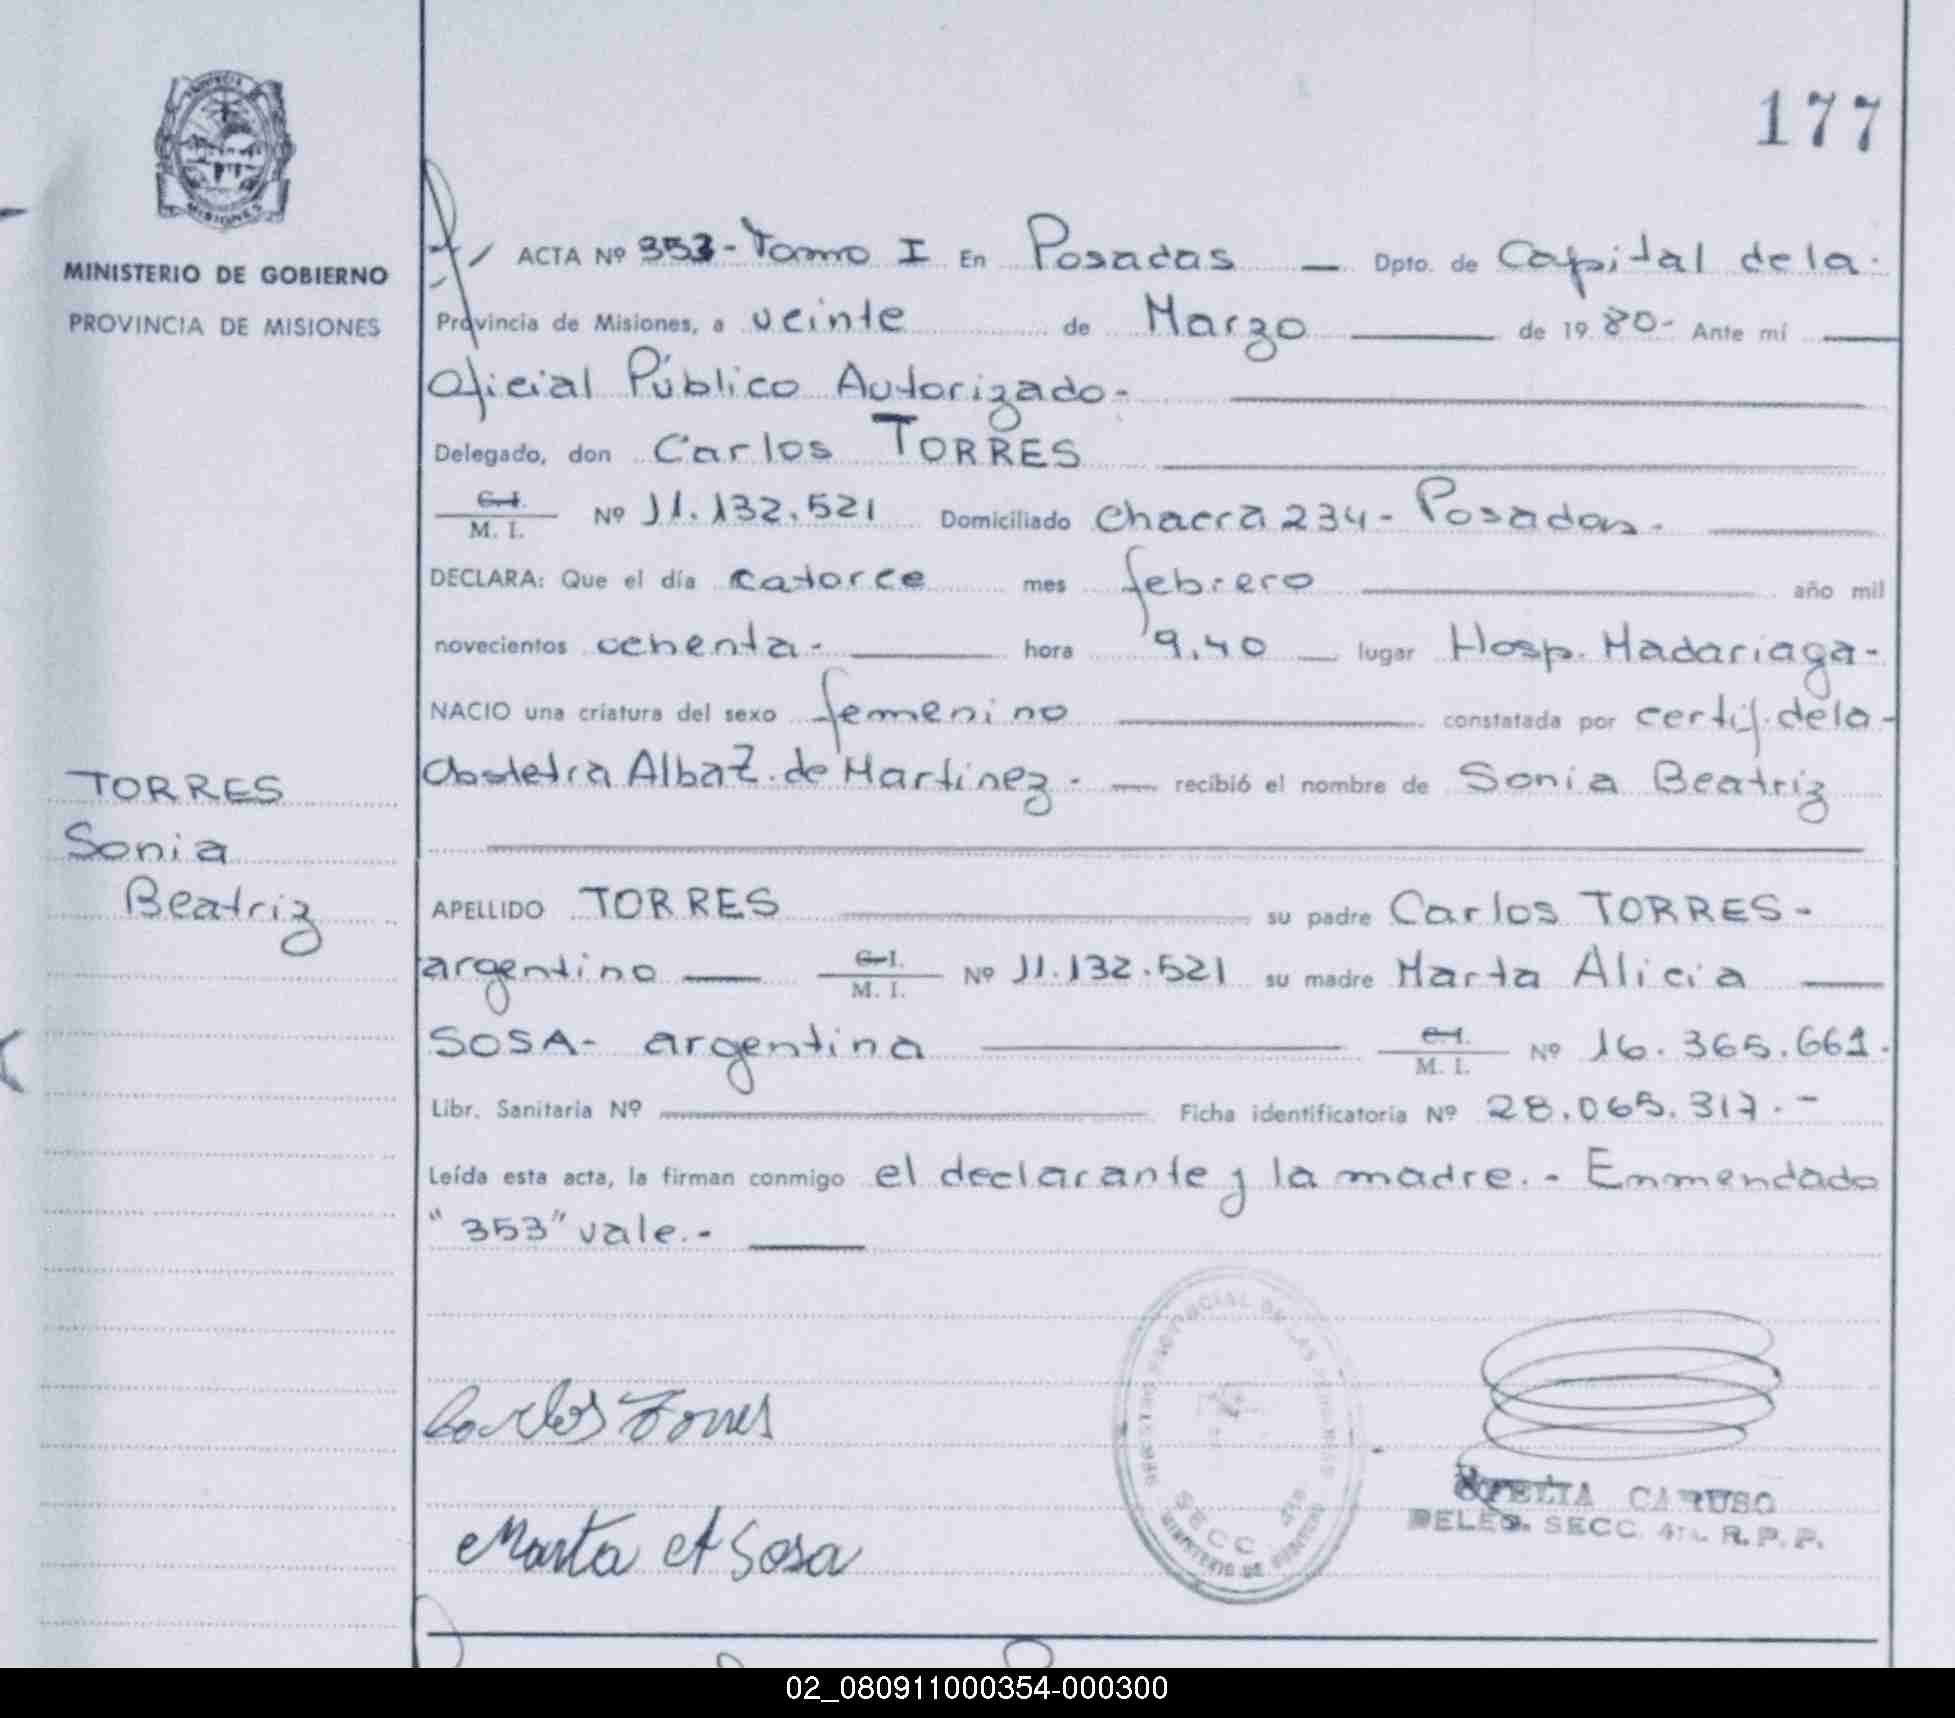 177
PROVINCIA
MISIONES
MINISTERIO DE GOBIERNO
PROVINCIA DE MISIONES
ACTA Nº 353- Tomo I En Posadas — Dpto. de Capital de la.
Provincia de Misiones, a veinte de Marzo — de 19 80- Ante mí —
Oficial Público Autorizado-
Delegado, don Carlos TORRES
C.I. / M. I. Nº 11.132.521 Domiciliado Chacra 234- Posadas.
DECLARA: Que el día catorce mes febrero año mil
novecientos ochenta- hora 9.40 — lugar Hosp. Madariaga-
NACIO una criatura del sexo femenino constatada por certif. de la-
Obstetra Alba Z. de Martinez- — recibió el nombre de Sonia Beatriz
TORRES
Sonia
Beatriz
APELLIDO TORRES su padre Carlos TORRES-
argentino — C.I. / M. I. Nº 11.132.521 su madre Marta Alicia —
SOSA- argentina C.I. / M. I. Nº 16.365.661.
Libr. Sanitaria Nº Ficha identificatoria Nº 28.065.317.-
Leída esta acta, la firman conmigo el declarante y la madre.- Enmendado
"353" vale.-
Carlos Torres
Marta A Sosa
PROVINCIAL DE LAS PERSONAS
SECC 4ta
MINISTERIO DE GOBIERNO
CARUSO
DELEG. SECC. 4ta. R. P. P.
02_080911000354-000300